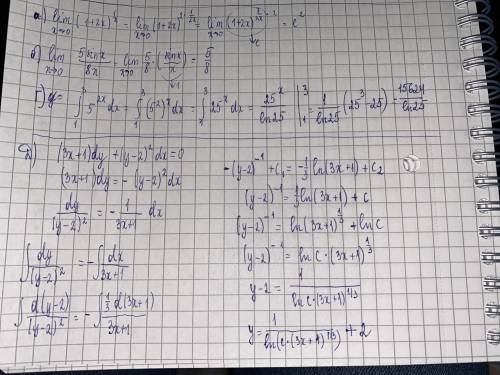 а.) lim x→0 (1+2x)^{1/x} = lim x→0 (1+2x)^{2·1/2x} = lim x→0 (1+2x)^{1/2x · 2} = e^2
→e
б) lim x→0 5sinx/8x = lim x→0 5/8 (sinx/x) = 5/8
→1
y = ∫_1^3 5^{2x}dx = ∫_1^3 (5^2)^x dx = ∫_1^3 25^x dx = 25^x/ln25 |_1^3 = 1/ln25 (25^3-25) = 15624/ln25
Д) (3x+1)dy + (y-2)^2 dx = 0
(3x+1)dy = - (y-2)^2 dx
dy/(y-2)^2 = - 1/3x+1 dx
∫ dy/(y-2)^2 = - ∫ dx/3x+1
∫ d(y-2)/(y-2)^2 = - ∫ 1/3 d(3x+1)/3x+1
-(y-2)^{-1} + C_1 = -1/3 ln(3x+1) + C_2
(y-2)^{-1} = 1/3 ln(3x+1) + C
(y-2)^{-1} = ln(3x+1)^{1/3} + lnC
(y-2)^{-1} = ln C·(3x+1)^{1/3}
y-2 = 1/ln C·(3x+1)^{1/3}
y = 1/ln(C·(3x+1)^{1/3}) + 2